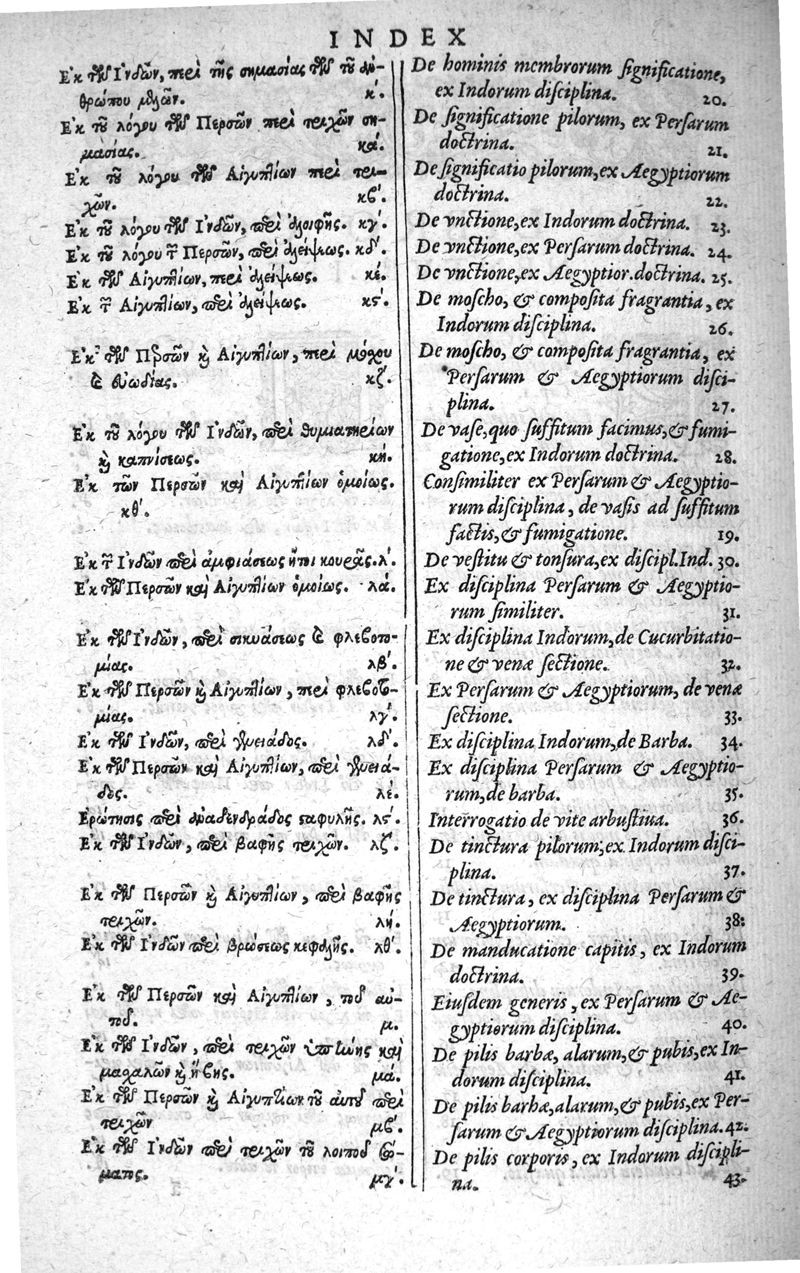 INDEX
Ἐκ τῶν Ἰνδῶν, περὶ τῆς σημασίας τῶν τοῦ ἀν-
θρώπου μελῶν. κʹ.
Ἐκ τοῦ λόγου τῶν Περσῶν περὶ τριχῶν ση-
μασίας. καʹ.
Ἐκ τοῦ λόγου τῶν Αἰγυπτίων περὶ τρι-
χῶν. κβʹ.
Ἐκ τοῦ λόγου τῶν Ἰνδῶν, περὶ ἀλοιφῆς. κγʹ.
Ἐκ τοῦ λόγου τῶν Περσῶν, περὶ ἀλείψεως. κδʹ.
Ἐκ τῶν Αἰγυπτίων, περὶ ἀλείψεως. κέ.
Ἐκ τῶν Αἰγυπτίων, περὶ ἀλείψεως. κϛʹ.
Ἐκ τῶν Περσῶν καὶ Αἰγυπτίων, περὶ μόσχου
καὶ εὐωδίας. κζʹ.
Ἐκ τοῦ λόγου τῶν Ἰνδῶν, περὶ θυμιατηρίων
καὶ καπνίσεως. κή.
Ἐκ τῶν Περσῶν καὶ Αἰγυπτίων ὁμοίως.
κθʹ.
Ἐκ τῶν Ἰνδῶν περὶ ἀμφιάσεως ἤτοι κουρᾶς. λʹ.
Ἐκ τῶν Περσῶν καὶ Αἰγυπτίων ὁμοίως. λά.
Ἐκ τῶν Ἰνδῶν, περὶ σικυάσεως καὶ φλεβοτο-
μίας. λβʹ.
Ἐκ τῶν Περσῶν καὶ Αἰγυπτίων, περὶ φλεβοτο-
μίας. λγʹ.
Ἐκ τῶν Ἰνδῶν, περὶ γενειάδος. λδʹ.
Ἐκ τῶν Περσῶν καὶ Αἰγυπτίων, περὶ γενειά-
δος. λέ.
Ἐρώτησις περὶ ἀναδενδράδος σταφυλῆς. λϛʹ.
Ἐκ τῶν Ἰνδῶν, περὶ βαφῆς τριχῶν. λζʹ.
Ἐκ τῶν Περσῶν καὶ Αἰγυπτίων, περὶ βαφῆς
τριχῶν. λή.
Ἐκ τῶν Ἰνδῶν περὶ βρώσεως κεφαλῆς. λθʹ.
Ἐκ τῶν Περσῶν καὶ Αἰγυπτίων, τοῦ αὐ-
τοῦ. μ.
Ἐκ τῶν Ἰνδῶν, περὶ τριχῶν ὑπήνης καὶ
μασχαλῶν καὶ ἥβης. μά.
Ἐκ τῶν Περσῶν καὶ Αἰγυπτίων τοῦ αὐτοῦ περὶ
τριχῶν μβʹ.
Ἐκ τῶν Ἰνδῶν περὶ τριχῶν τοῦ λοιποῦ σώ-
ματος. μγʹ.
De hominis membrorum ſignificatione,
ex Indorum diſciplina. 20.
De ſignificatione pilorum, ex Perſarum
doctrina. 21.
De ſignificatio pilorum, ex Aegyptiorum
doctrina. 22.
De vnctione, ex Indorum doctrina. 23.
De vnctione, ex Perſarum doctrina. 24.
De vnctione, ex Aegyptior. doctrina. 25.
De moſcho, & compoſita fragrantia, ex
Indorum diſciplina. 26.
De moſcho, & compoſita fragrantia, ex
Perſarum & Aegyptiorum diſci-
plina. 27.
De vaſe, quo ſuffitum facimus, & fumi-
gatione, ex Indorum doctrina. 28.
Conſimiliter ex Perſarum & Aegyptio-
rum diſciplina, de vaſis ad ſuffitum
factis, & fumigatione. 19.
De veſtitu & tonſura, ex diſcipl. Ind. 30.
Ex diſciplina Perſarum & Aegyptio-
rum ſimiliter. 31.
Ex diſciplina Indorum, de Cucurbitatio-
ne & venæ ſectione. 32.
Ex Perſarum & Aegyptiorum, de venæ
ſectione. 33.
Ex diſciplina Indorum, de Barba. 34.
Ex diſciplina Perſarum & Aegyptio-
rum, de barba. 35.
Interrogatio de vite arbuſtiua. 36.
De tinctura pilorum, ex Indorum diſci-
plina. 37.
De tinctura, ex diſciplina Perſarum &
Aegyptiorum. 38:
De manducatione capitis, ex Indorum
doctrina. 39.
Eiuſdem generis, ex Perſarum & Ae-
gyptiorum diſciplina. 40.
De pilis barbæ, alarum, & pubis, ex In-
dorum diſciplina. 41.
De pilis barbæ, alarum, & pubis, ex Per-
ſarum & Aegyptiorum diſciplina. 42.
De pilis corporis, ex Indorum diſcipli-
na. 43.